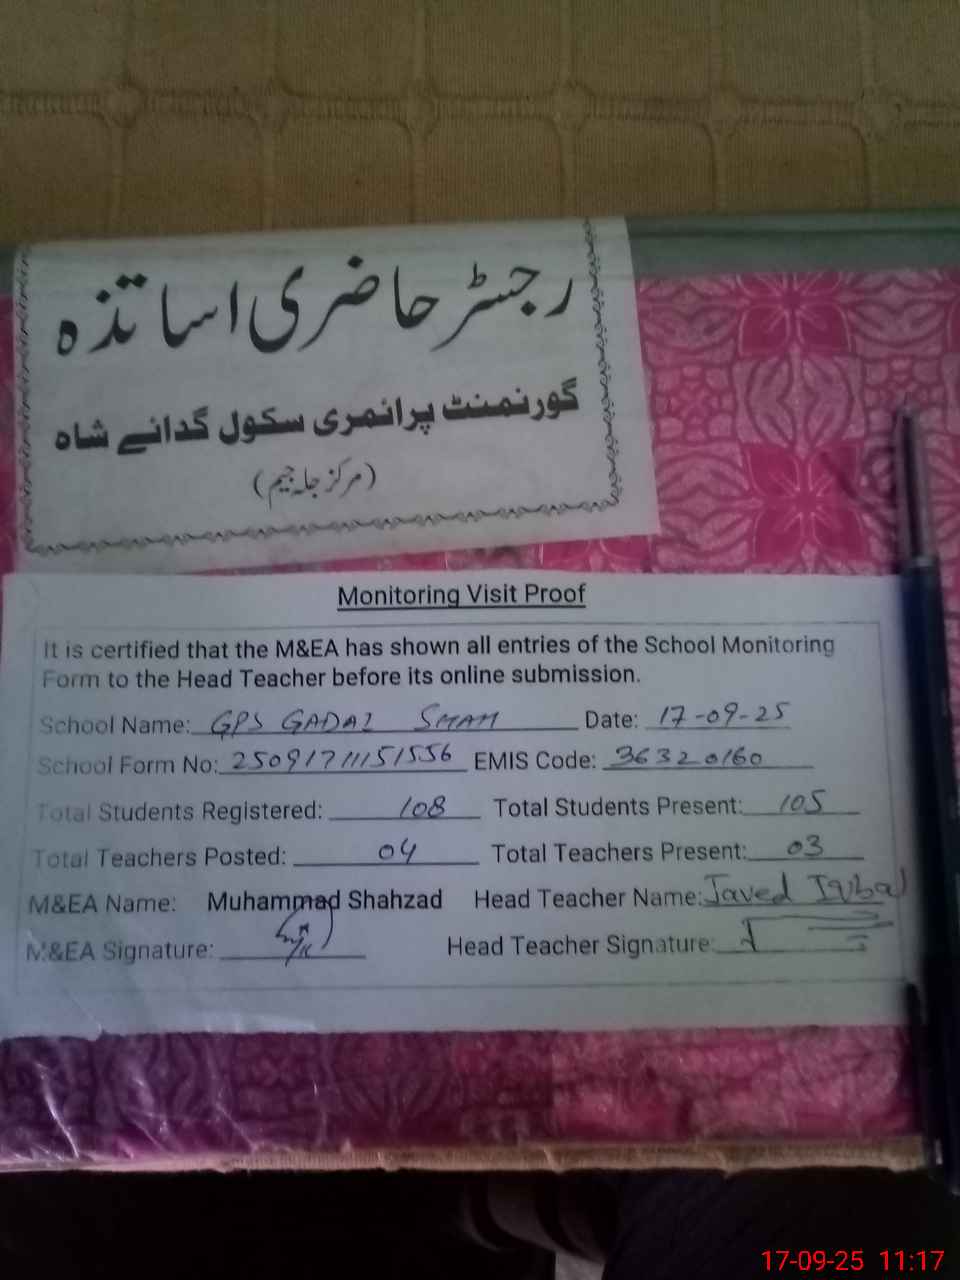 رجسٹر حاضری اساتذہ
گورنمنٹ پرائمری سکول گدائے شاہ
(مرکز جلہ جیم)
Monitoring Visit Proof
It is certified that the M&EA has shown all entries of the School Monitoring
Form to the Head Teacher before its online submission.
School Name: GPS GADAI SHAH Date: 17-09-25
School Form No: 25091711151556 EMIS Code: 36320160
Total Students Registered: 108 Total Students Present: 105
Total Teachers Posted: 04 Total Teachers Present: 03
M&EA Name: Muhammad Shahzad Head Teacher Name: Javed Iqbal
M&EA Signature: Head Teacher Signature:
17-09-25 11:17